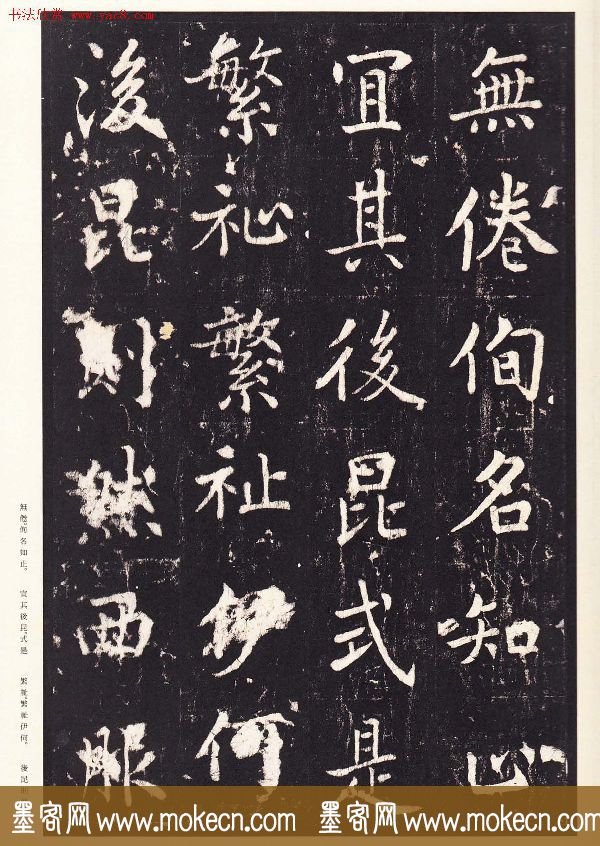 书法欣赏 www.yac8.com
無倦徇名知止
宜其後昆式是
繁祉繁祉伊何
後昆則然西服
無倦徇名知止。 宜其後昆式是 繁祉繁祉伊何。 後昆
墨客网 www.mokecn.com 墨客网 www.mokecn.com